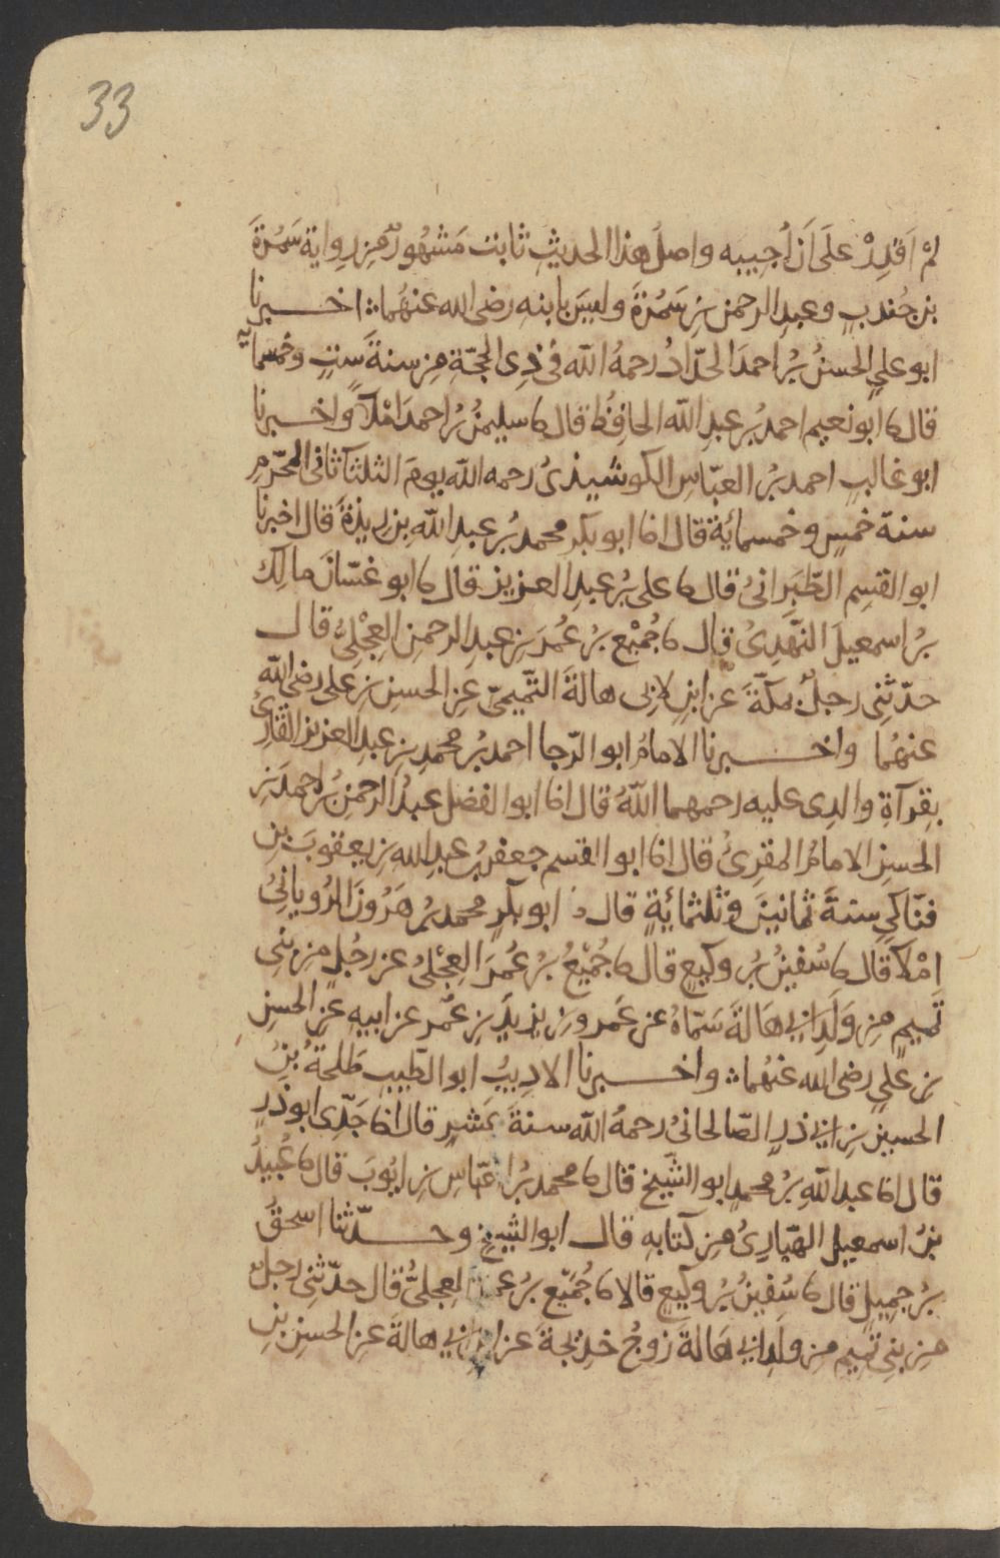 33
لمْ اَقْدِرْ علَى اَنْ اُجيبه واصلُ هذا الحديثِ ثابت مَشهُورٌ مِن رواية سَمُرَةَ
بن جُندبٍ وعبدِ الرحمن بنِ سَمُرَةَ وليسَ بابنه رضى الله عنهُما اخــبرنا
ابو عليٍ الحسنُ بنُ احمدَ الحدّادُ رحمهُ اللّه فى ذِى الحجّةِ مِن سنةَ ستٍ وخمسمايه
قال ثا ابو نعيم احمد بنُ عبدِ اللّه الحافِظُ قال ثا سليمنُ بنُ احمدَ امْلآً واخــبرنا
ابو غالبٍ احمد بنُ العبّاسِ الكوشيذىُ رحمه اللّه يومَ الثلثآ ثانى المحرّمِ
سنة خمسٍ وخمسمائةٍ قال انا ابو بكرٍ محمد بنُ عبدِ اللّه بن ريذةَ قال اخبرنا
ابو القسِم الطّبَرانىُ قال ثا على بنُ عبدِ العزيز قال ثا ابو غسّانَ مالِك
بنُ اسمعيلَ النّهدِىُ قال ثا جُمَيْع بنُ عُمَرَ بنِ عبدِ الرحمنِ العِجْلِىُّ قال
حدّثنِى رجلٌ بمكّةَ عن ابنٍ لابى هالةَ التّميمىّ عنِ الحسنِ بنِ علىٍ رضى اللّه
عنهُما واخــبرنا الامامُ ابو الرّجا احمد بنُ محمدِ بنِ عبدِ العزيز القارِىُ
بقِرآةِ والدِى عليه رحمهما اللّهُ قال انا ابو الفضل عبدُ الرحمن بنُ احمدَ بنِ
الحسنِ الامامُ المقرِىُ قال انا ابو القسم جعفر بنُ عبدِ اللّه بن يعقوبَ بنِ
فنّاكىِ سنةَ ثمانينَ وثلثمائةٍ قال ثا ابو بكرٍ محمد بنُ هَرُونَ الرُّويانِىُّ
امْلآً قال ثا سُفينُ بنُ وكيعٍ قال ثا جُمَيْعُ بنُ عُمَرَ العِجْلىُ عن رَجُلٍ مِن بنِى
تَميمٍ مِن وَلَدِ ابى هَالةَ سَمّاهُ عن عَمرو بنِ يزيدَ بنِ عُمَر عن ابيه عنِ الحسنِ
بن علىٍ رضى الله عنهُما واخــبرنا الادِيبُ ابو الطّيبِ طَلحةُ بنُ
الحسينِ بنِ ابى ذرٍ الصّالحانىُ رحمهُ اللّه سنةَ عَشرٍ قال انا جَدِّى ابو ذرٍ
قال انا عبد اللّهِ بنُ محمدٍ ابو الشّيخ قال ثا محمد بنُ العبّاسِ بنِ ايُوبَ قال ثا عُبيدُ
بنُ اسمعيل الهبّارِىُ مِن كتابهِ قال ابو الشيخ وحــدّثنا اسحقُ
بنُ جميلٍ قال ثا سُفينُ بنُ وكيعٍ قالا ثا جُمَيّع بنُ عمر العجلىُّ قال حدّثنِى رجل
مِن بنِى تميم مِن ولدِ ابى هَالةَ زوجُ خدِيجةَ عن ابن ابى هالةَ عنِ الحسنِ بنِ